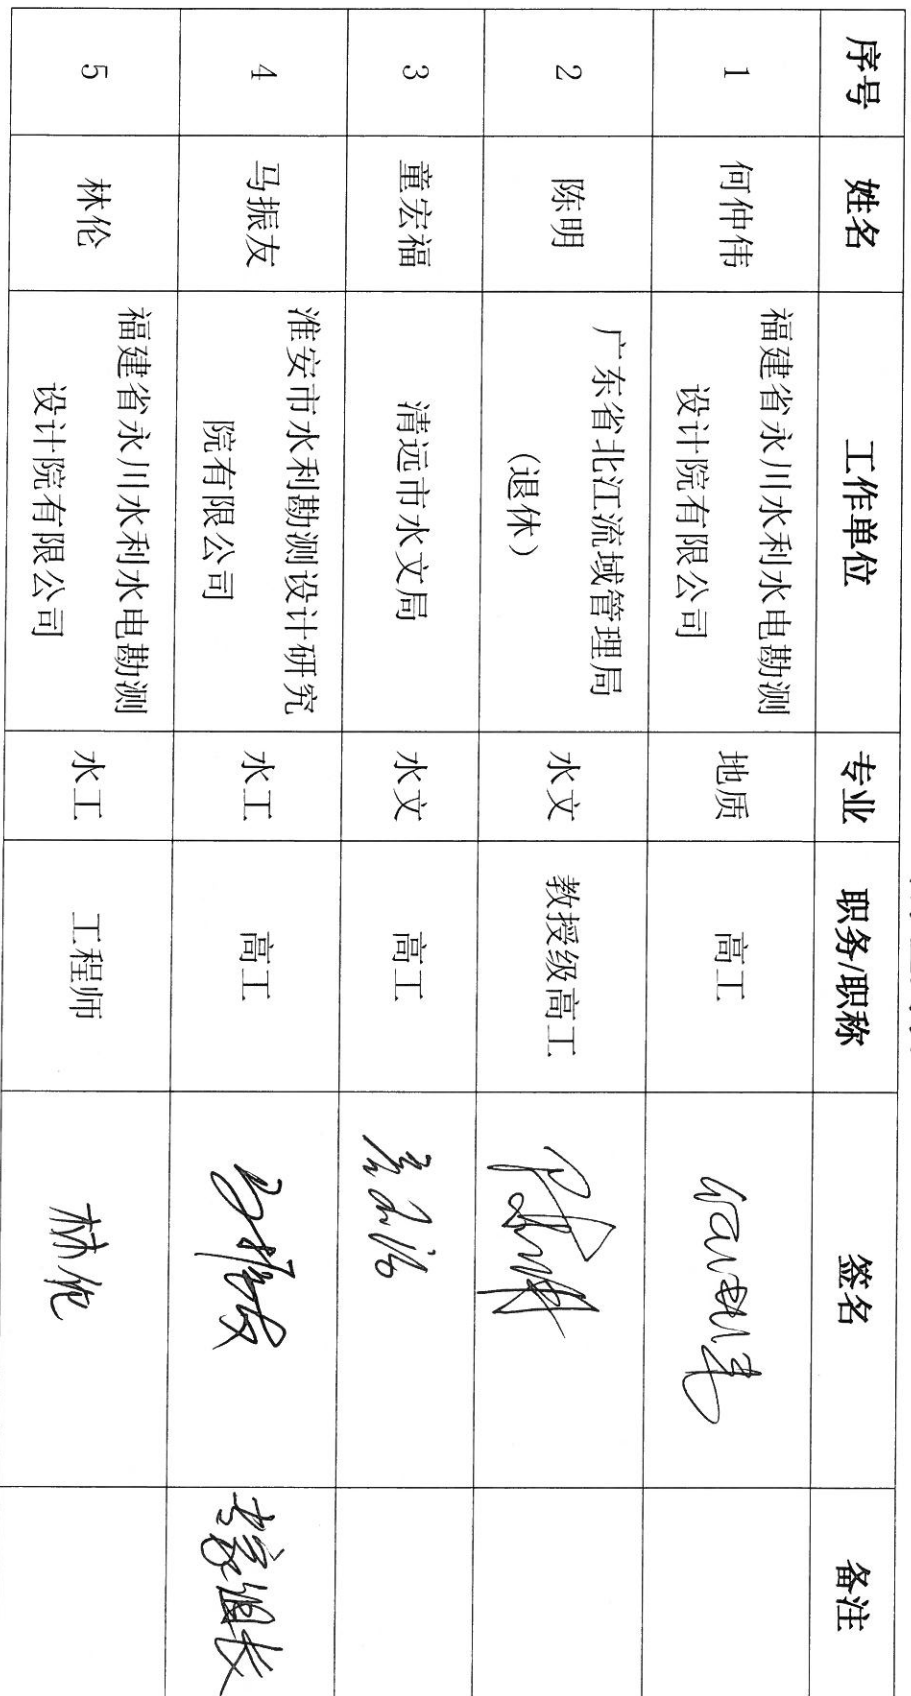 序号 姓名 工作单位 专业 职务/职称 签名 备注
1 何仲伟 福建省永川水利水电勘测设计院有限公司 地质 高工
2 陈明 广东省北江流域管理局(退休) 水文 教授级高工
3 童宏福 清远市水文局 水文 高工
4 马振友 淮安市水利勘测设计研究院有限公司 水工 高工 马振友 专家组长
5 林伦 福建省永川水利水电勘测设计院有限公司 水工 工程师 林伦